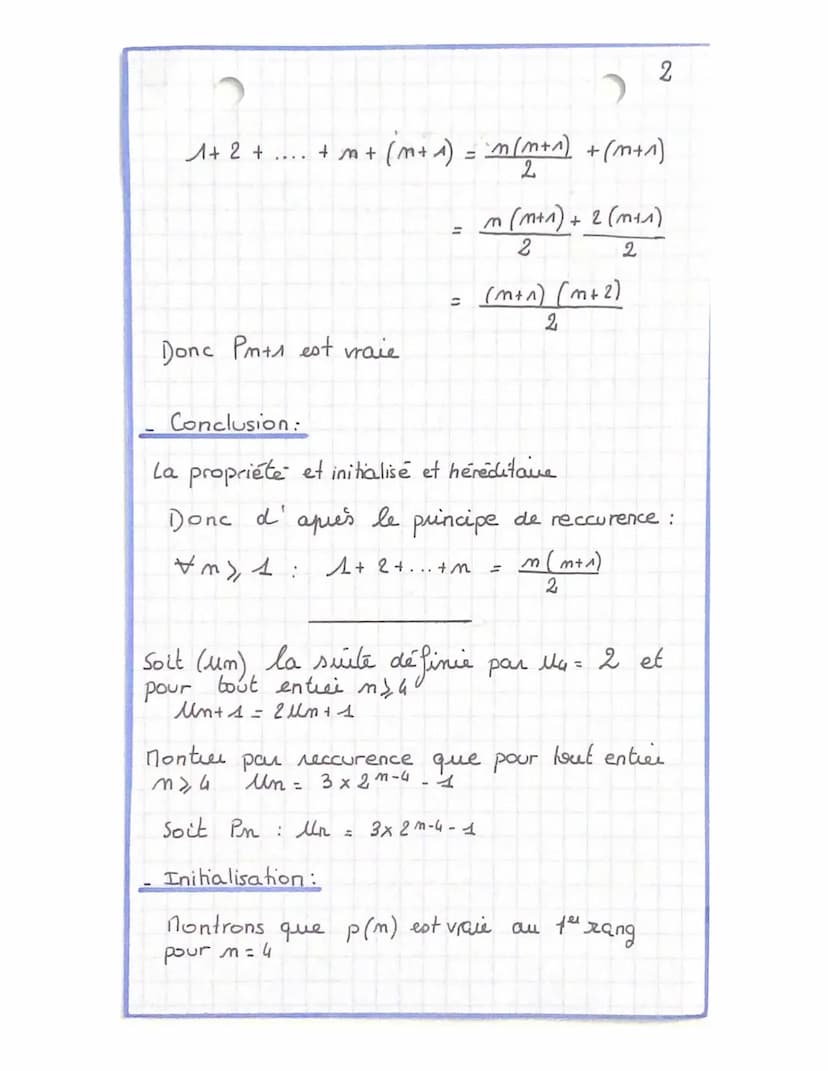 2
1 + 2 + .... + n + (n+1) = n(n+1)/2 + (n+1)
= n(n+1)/2 + 2(n+1)/2
= (n+1)(n+2)/2
Donc Pn+1 est vraie
- Conclusion :
La propriété et initialisé et héréditaire
Donc d'après le principe de reccurence :
∀ n ⩾ 1 : 1 + 2 + ... + n = n(n+1)/2
Soit (un) la suite définie par u4 = 2 et
pour tout entier n ⩾ 4
un+1 = 2un + 1
Montrer par reccurence que pour tout entier
n ⩾ 4 un = 3 x 2^n-4 - 1
Soit Pn : un = 3 x 2^n-4 - 1
- Initialisation :
Montrons que p(n) est vraie au 1er rang
pour n = 4